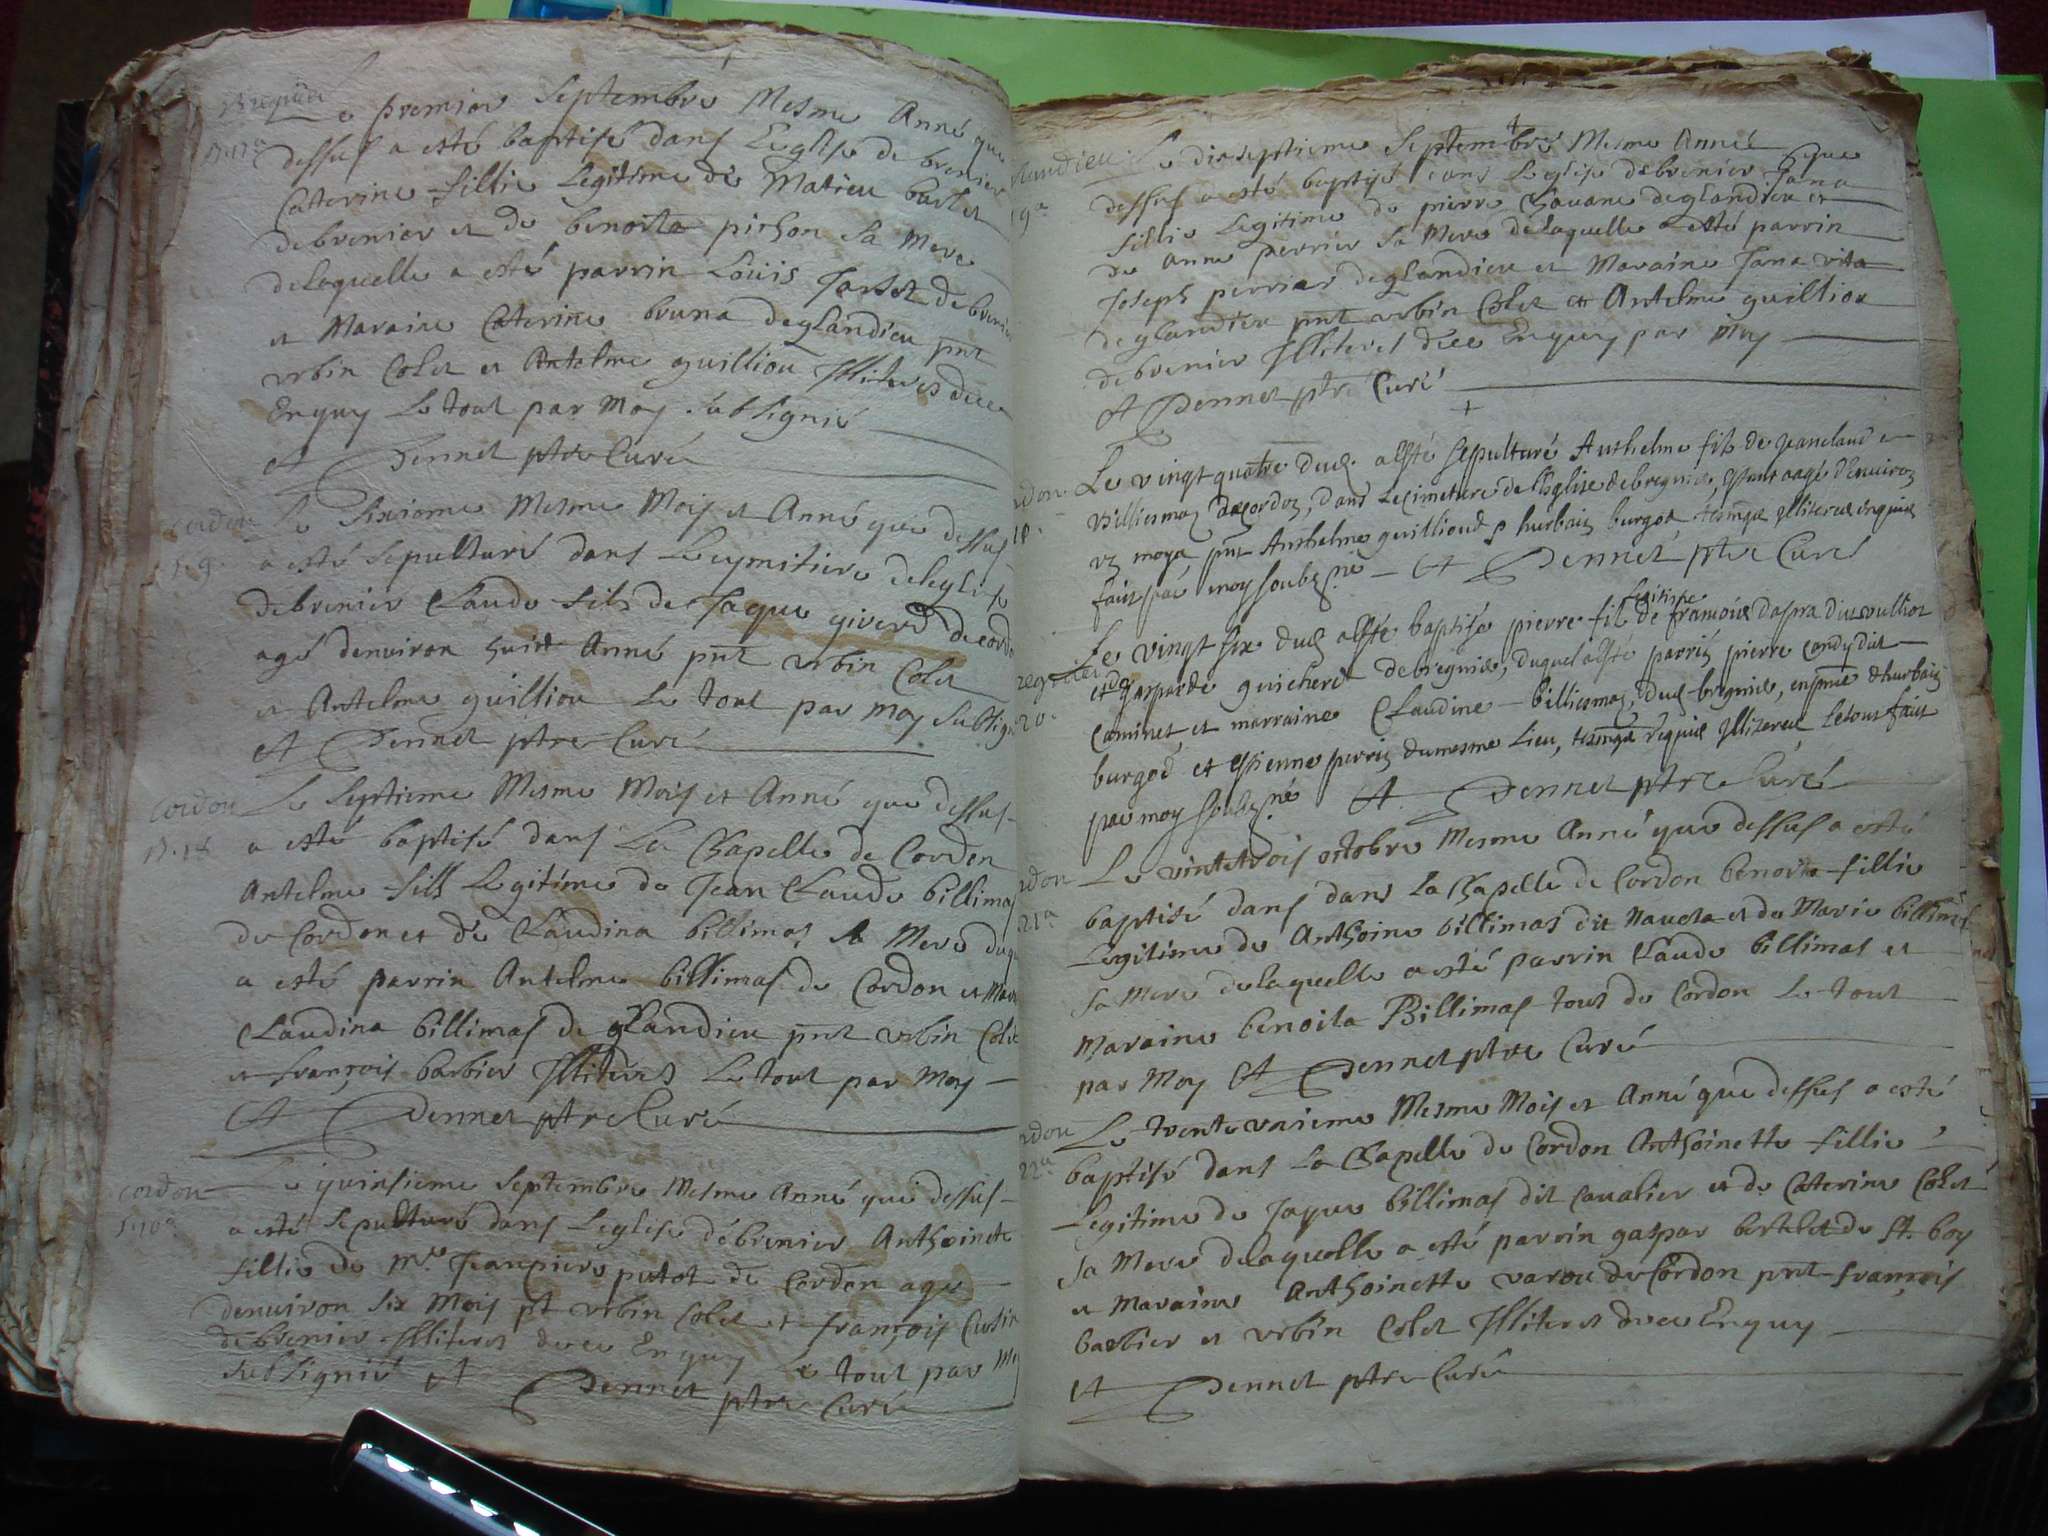 Le premier septembre mesme Anné que
dessus a esté baptisé dans Leglise de brenier
Caterine fillie Legitime de Matieu
debrenier et de benoita pichon sa mere
delaquelle a esté parrin Loüis de brenier
et Maraine Caterine bruna deglandieu pnt
vrbin Colet et Antelme guilliou Illiteres dece
Enquy Le tout par Moy subsignié
A Dennet ptre Curé
Cordon
Le sixieme mesme Mois et Anné que dessus
a esté sepulturé dans Leymitiere deleglise
debrenier Claude fils de Jaque giverd de Cordon
agé denuiron huict Anné pnt vrbin Colet
et Antelme guilliou Le tout par moy subsig
A Dennet ptre Curé
Cordon
Le septieme Mesme Mois et Anné que dessus
a esté baptisé dans La Chapelle de Cordon
Antelme fils Legitime de Jean Claude billimas
de Cordon et de Claudina billimas sa Mere duq
a esté parrin Antelme billimas de Cordon et Mar
Claudina billimas de glandieu pnt vrbin Colet
et françois barbier Illiteres Le tout par Moy
A Dennet ptre Curé
Cordon
Le quinsieme septembre Mesme Anné que dessus
a esté sepulturé dans Leglise debrenier Anthoinete
fillie de Mre Jeanpiere putot de Cordon age
denuiron six Mois pt vrbin Colet et françois
debrenier Illiteres dece Enquy Le tout par M
subsignié A Dennet ptre Curé
Le dixseptieme septembre Mesme Anneé que
dessus a esté baptisé dans Leglise debrenier Jana
fillie Legitime de pierre deglandieu et
de Anne perrier sa Mere delaquelle a esté parrin
Joseph perrier deglandieu et Maraine Jana vita
deglandieu pnt vrbin Colet et Antelme guilliou
debrenier Illiteres dece Enquy par Moy
A Dennet ptre Curé
Le vingt quatre dud. aesté sepulturé Anthelme fils de Jeanclaud
billiemaz de Cordoz, dans Lecimetiere de leglise debregnié, estant aagé denuiroz
vz moys, pnt Anthelme guillioud & hurbaiz burgod illiteres enquis
faict par moy soubzné A Dennet ptre Curé
Le vingt six dud aesté baptisé pierre fils legitime de françois dit vulliod
et de gasparde guicherd de bregnié, duquel aesté parriz pierre dit
Caminet et marraine Claudine billiemaz, dud bregnié, en pnce dhurbaiz
burgod et estienne perriz dumesme Lieu, enquis Illiteres Letout faict
par moy soubzné A Dennet ptre Curé
Le vintetrois octobre Mesme Anné que dessus a esté
baptisé dans dans La Chapelle de Cordon benoita fillie
Legitime de Anthoine billimas dit et de Marie billimas
sa Mere delaquelle a esté parrin Claude billimas et
Maraine benoita Billimas tout de Cordon Le tout
par Moy A Dennet ptre Curé
Le trente vnieme Mesme Mois et Anné que dessus a esté
baptisé dans La Chapelle de Cordon Anthoinette fillie
Legitime de Jaque billimas dit Caualier et de Caterine Colet
sa Mere delaquelle a esté parrin gaspar bertelet de st. boy
et Maraine Anthoinette de Cordon pnt françois
barbier et vrbin Colet Illiteres dece Enquy
A Dennet ptre Curé